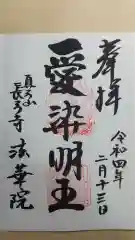 奉拝
令和四年
二月十三日
愛染明王
長弓寺
法華院